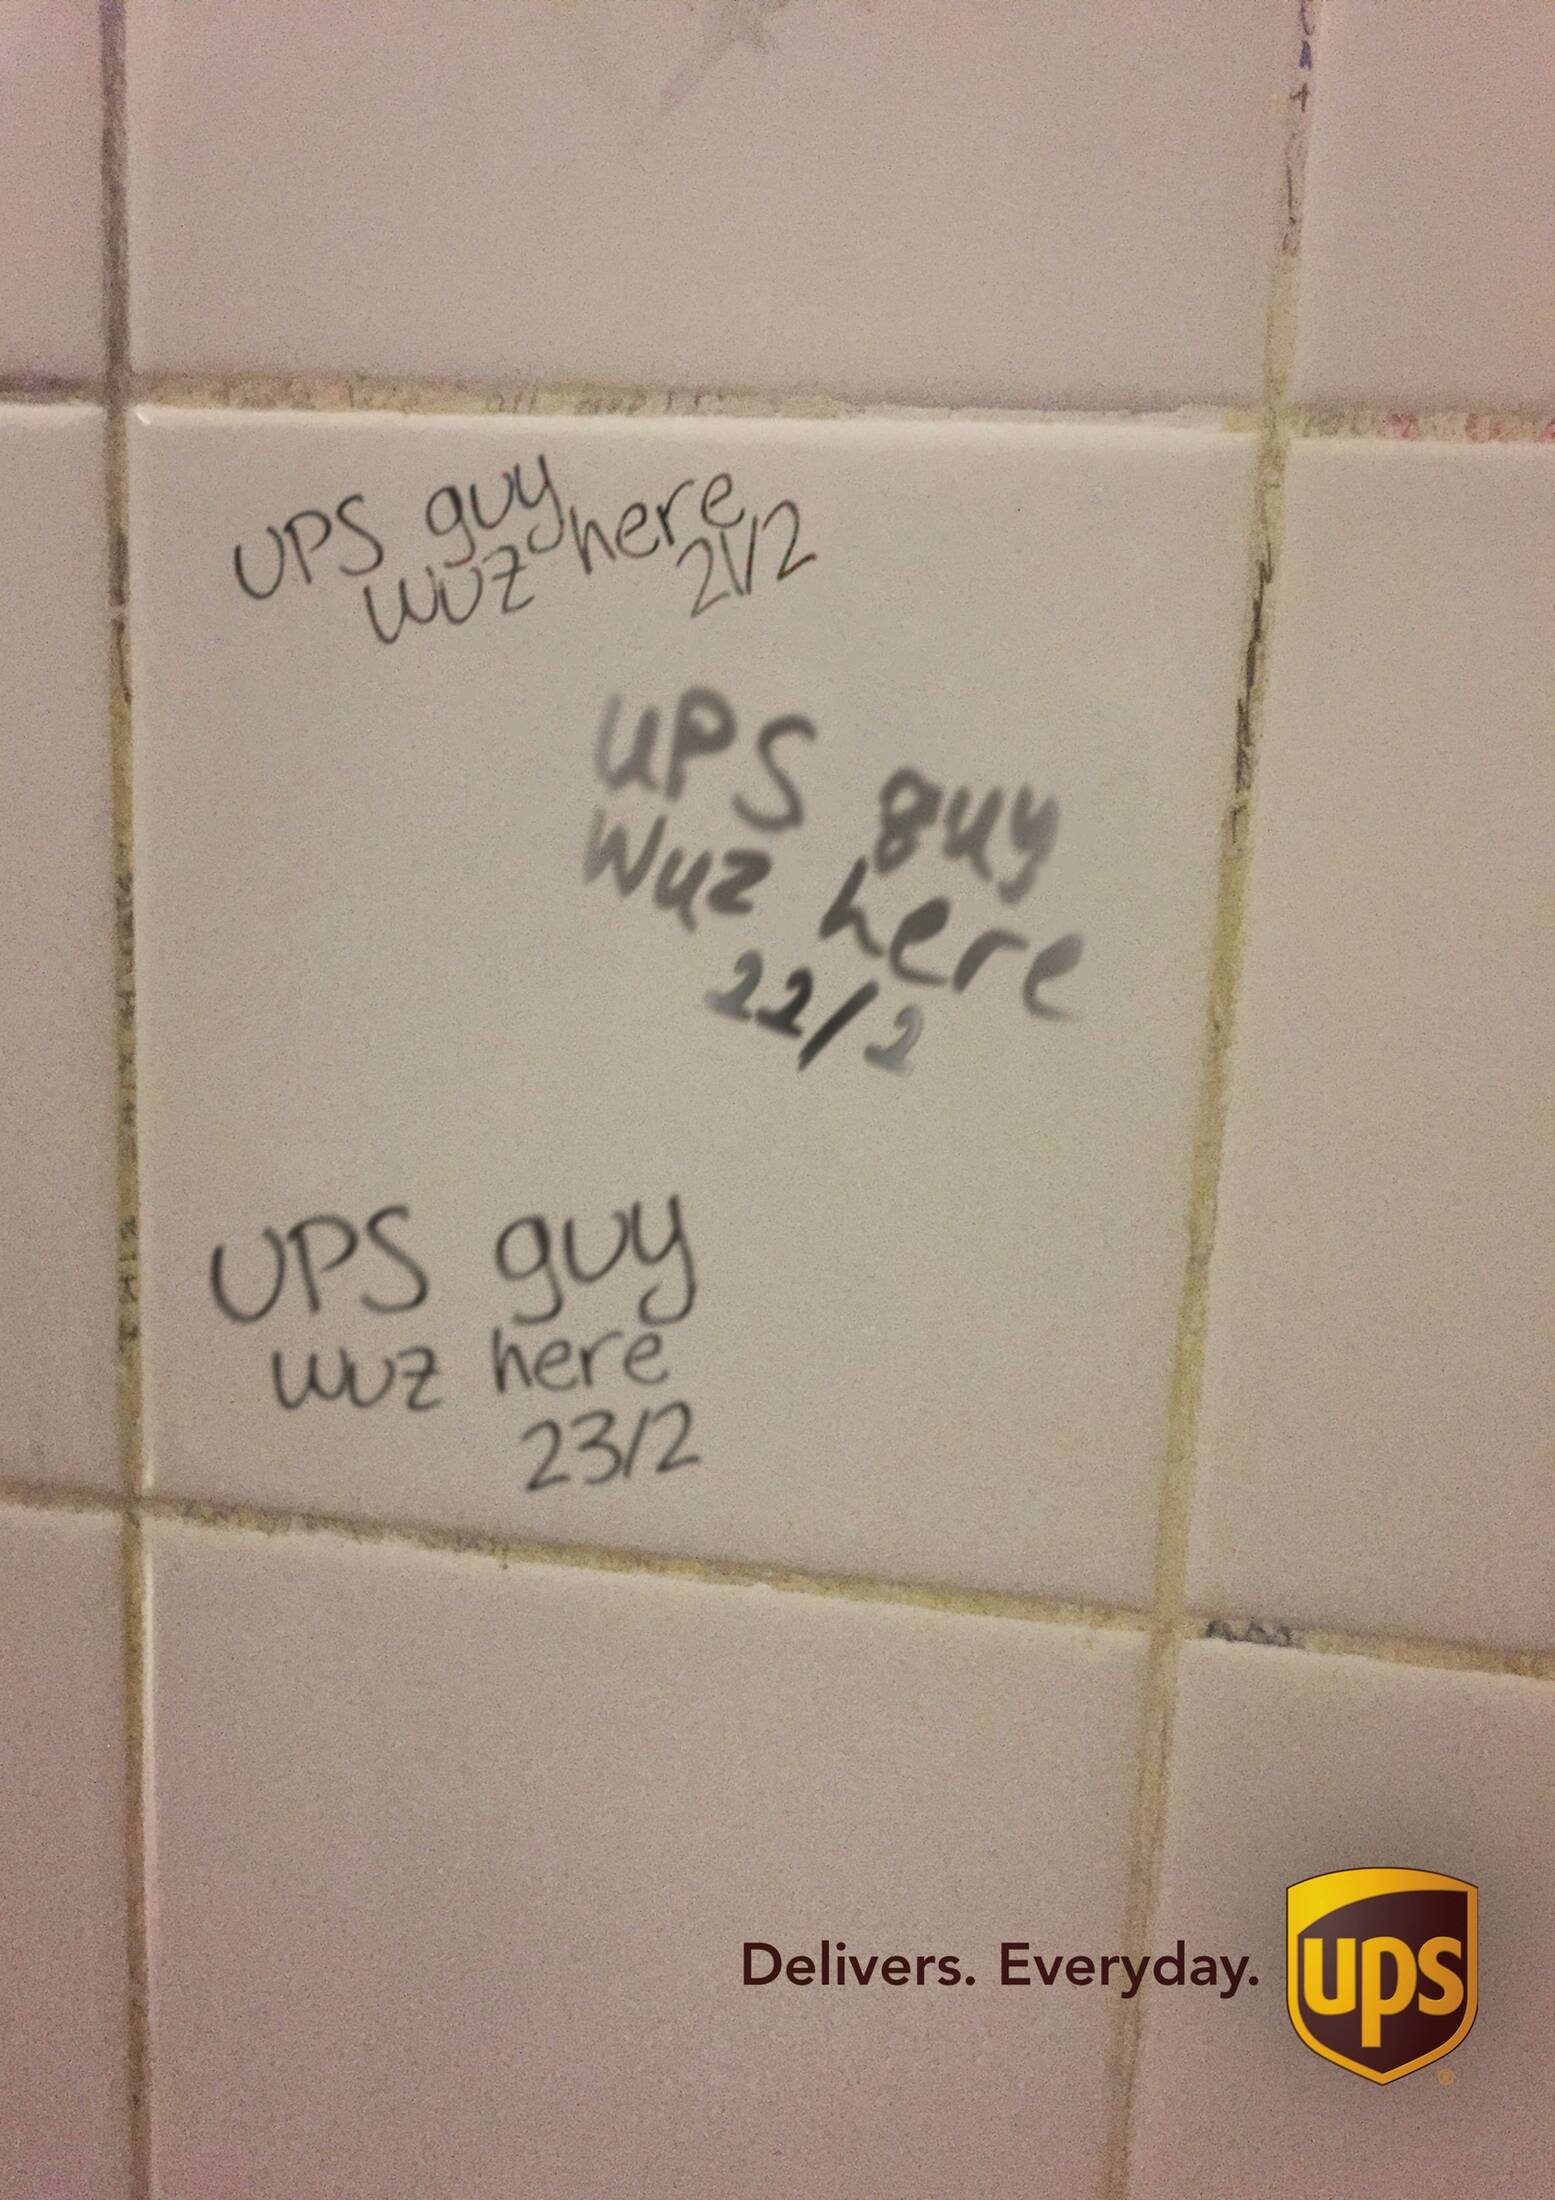 UPS guy
wuz here
21/2
UPS guy
Wuz here
22/2
UPS guy
wuz here
23/2
Delivers. Everyday.
ups
®